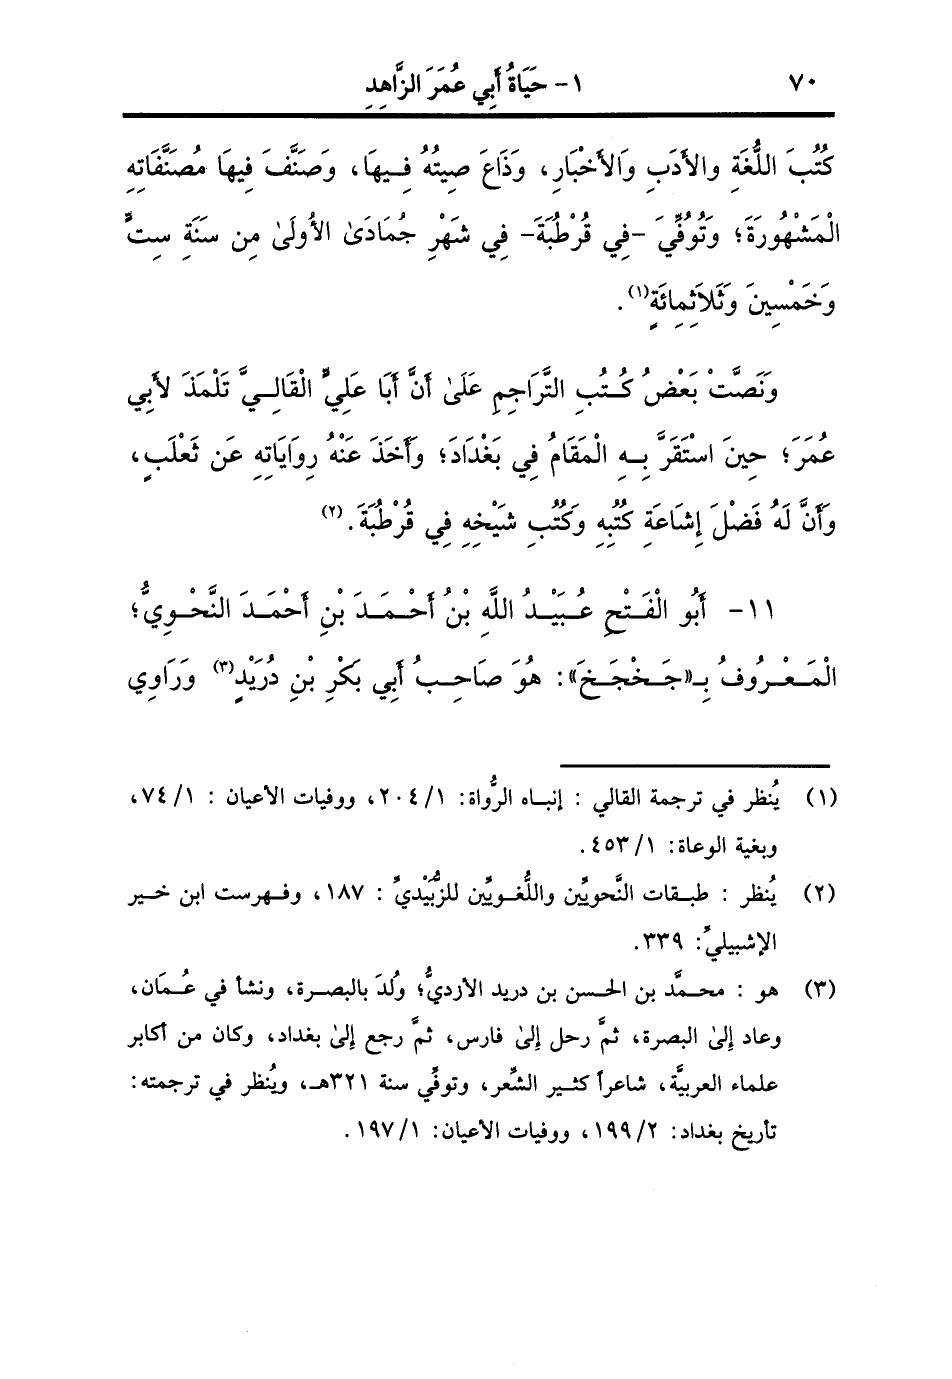 ٧٠ ١- حَيَاةُ أَبِي عُمَرَ الزَّاهِدِ
كُتُبَ اللُّغَةِ والأَدَبِ وَالأَخْبَارِ، وَذَاعَ صِيتُهُ فِيهَا، وَصَنَّفَ فِيهَا مُصَنَّفَاتِهِ
الْمَشْهُورَةَ؛ وَتُوُفِّيَ -فِي قُرْطُبَةَ- فِي شَهْرِ جُمَادَىٰ الأُولَىٰ مِن سَنَةِ سِتٍّ
وَخَمْسِينَ وَثَلاَثِمِائَةٍ(١).
وَنَصَّتْ بَعْضُ كُتُبِ التَّرَاجِمِ عَلَىٰ أَنَّ أَبَا عَلِيٍّ الْقَالِيَّ تَلْمَذَ لأَبِي
عُمَرَ؛ حِينَ اسْتَقَرَّ بِهِ الْمَقَامُ فِي بَغْدَادَ؛ وَأَخَذَ عَنْهُ رِوَايَاتِهِ عَن ثَعْلَبٍ،
وَأَنَّ لَهُ فَضْلَ إِشَاعَةِ كُتُبِهِ وَكُتُبِ شَيْخِهِ فِي قُرْطُبَةَ.(٢)
١١- أَبُو الْفَتْحِ عُبَيْدُ اللَّهِ بْنُ أَحْمَدَ بْنِ أَحْمَدَ النَّحْوِيُّ؛
الْمَعْرُوفُ بِـ«جَخْجَخَ»: هُوَ صَاحِبُ أَبِي بَكْرِ بْنِ دُرَيْدٍ(٣) وَرَاوِي
(١) يُنظر في ترجمة القالي : إنباه الرُّواة: ٢٠٤/١، ووفيات الأعيان : ٧٤/١،
وبغية الوعاة: ٤٥٣/١.
(٢) يُنظر : طبقات النَّحويِّين واللُّغويِّين للزُّبَيْديِّ : ١٨٧، وفهرست ابن خير
الإشبيليِّ: ٣٣٩.
(٣) هو : محمَّد بن الحسن بن دريد الأزديُّ؛ وُلدَ بالبصرة، ونشأ في عُمَان،
وعاد إلىٰ البصرة، ثمَّ رحل إلىٰ فارس، ثمَّ رجع إلىٰ بغداد، وكان من أكابر
علماء العربيَّة، شاعراً كثير الشِّعر، وتوفِّي سنة ٣٢١هـ، ويُنظر في ترجمته:
تأريخ بغداد: ١٩٩/٢، ووفيات الأعيان: ١٩٧/١.